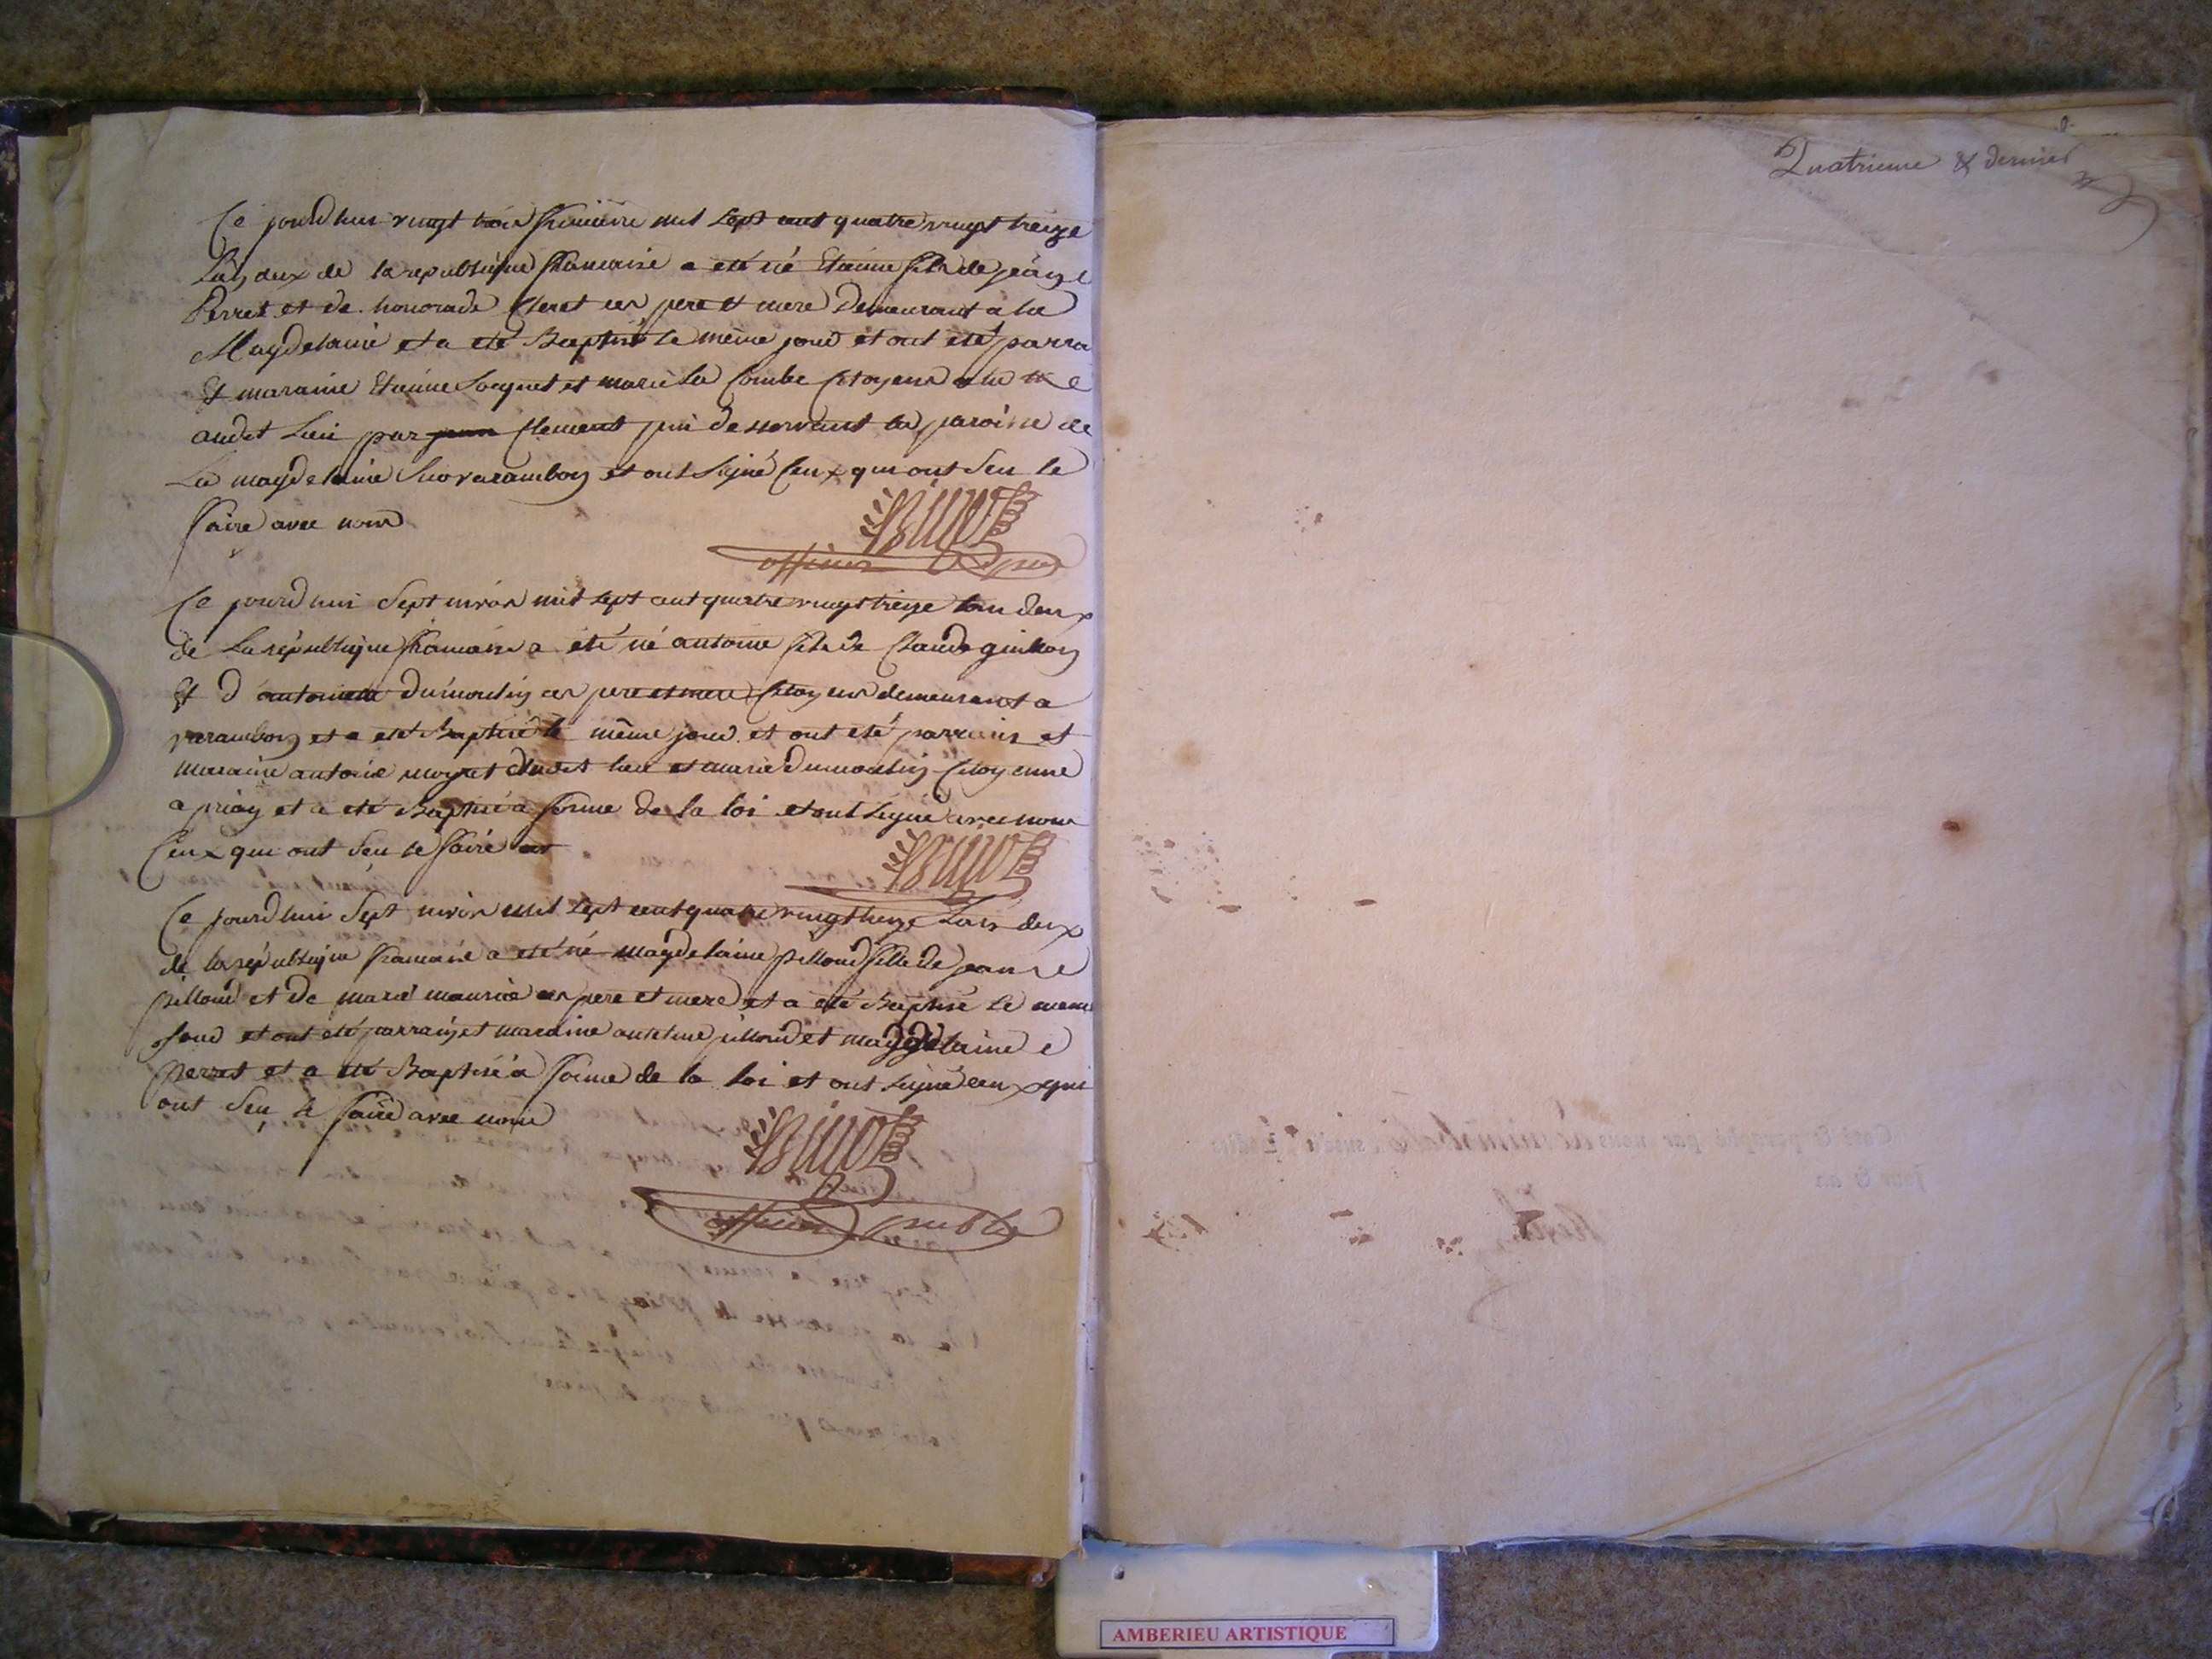 Ce jourdhui vingt trois frimaire mil sept cent quatre vingt treize
Lan deux de la republique francaise a eté né Etienne fils de jean
Perret et de honorade Cleret ces pere et mere demeurant a la
Magdelaine et a eté Baptisé le même jour et ont eté parra
Et maraine Etienne Socquet et marie La Combe Citoyens
audit Lieu par Clement desservant la paroisse de
La magdelaine Sur varambon et ont Signé Ceux qui ont Seu le
faire avec nous
officier
Ce jourdhui Sept nivos mil sept cent quatre vingt treize lan deux
de La republique francaise a été né antoine fils de Claude guillon
Et d antoinette dumoulin ces pere et mere Citoyens demeurant a
varambon et a eté Baptisé le même jour et ont eté parrain et
maraine antoine moyret dudit lieu et marie dumoulin Citoyenne
a priay et a eté Baptisé a forme de la loi et ont Signé avec nous
Ceux qui ont Seu le faire
Ce jourdhui Sept nivos mil sept cent quatre vingt treize Lan deux
de la république francaise a eté né magdelaine pilloud fille de jean
pilloud et de marie mauricé ces pere et mere et a eté Baptisé le meme
jour et ont été parrain et maraine antelme pilloud et magdelaine
perret et a eté Baptisé a forme de la loi et ont Signé ceux qui
ont Seu le faire avec nous
officier public
Quatrieme & dernier
AMBERIEU ARTISTIQUE